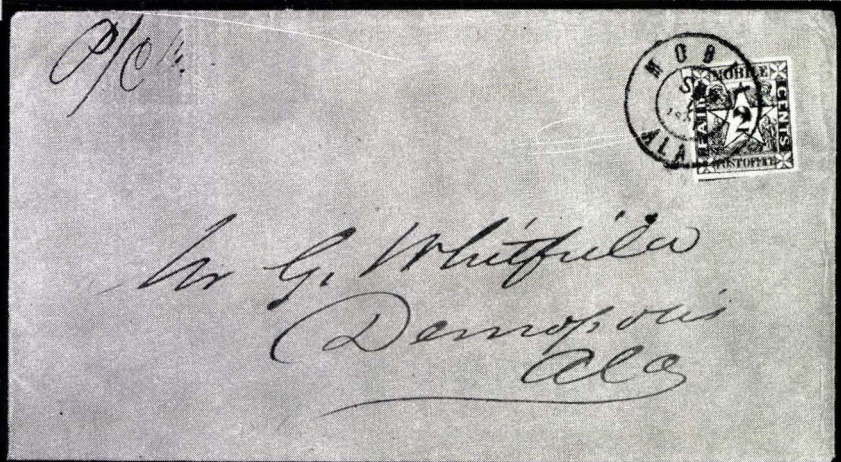 MOB
ALA
MOBILE
PAID
CENTS
2
POST OFFICE
Mr G. Whitfield
Demopolis
Ala